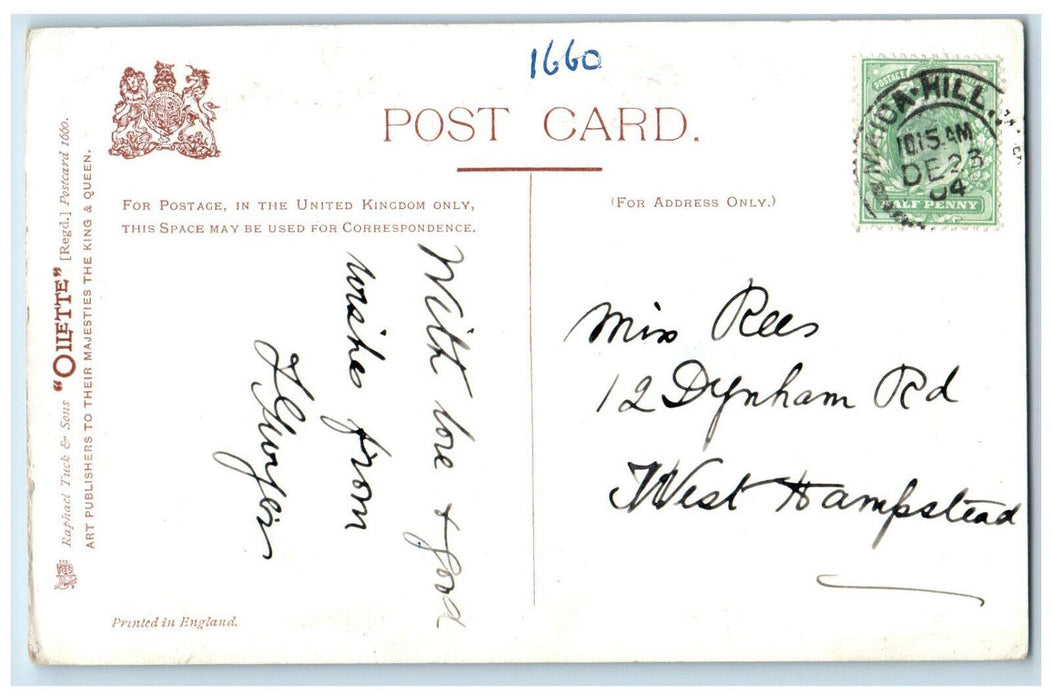 1660
POST CARD.
FOR POSTAGE, IN THE UNITED KINGDOM ONLY,
THIS SPACE MAY BE USED FOR CORRESPONDENCE.
(FOR ADDRESS ONLY.)
POSTAGE
MAIDA·HILL.
10.15 AM
DE 23
04
HALF PENNY
With love & good
wishes from
Miss Rees
12 Dynham Rd
West Hampstead
Raphael Tuck & Sons "OILETTE" [Regd.] Postcard 1660.
ART PUBLISHERS TO THEIR MAJESTIES THE KING & QUEEN.
Printed in England.